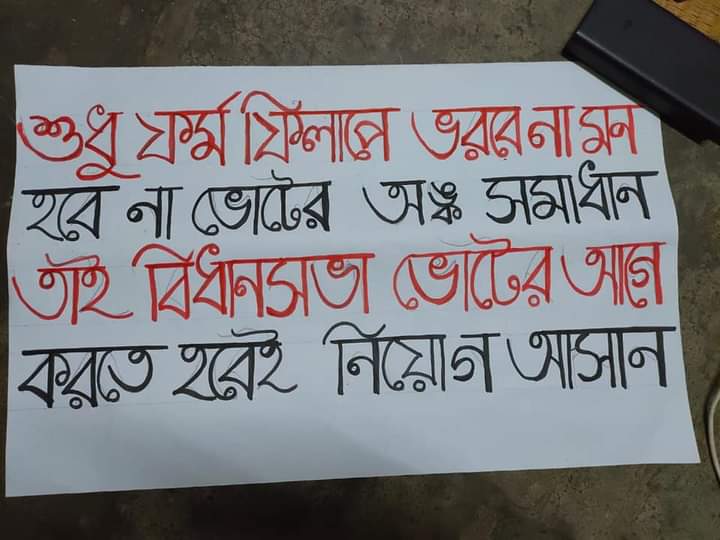 শুধু ফর্ম ফিলাপে ভরবে না মন
হবে না ভোটের অঙ্ক সমাধান
তাই বিধানসভা ভোটের আগে
করতে হবেই নিয়োগ আসান